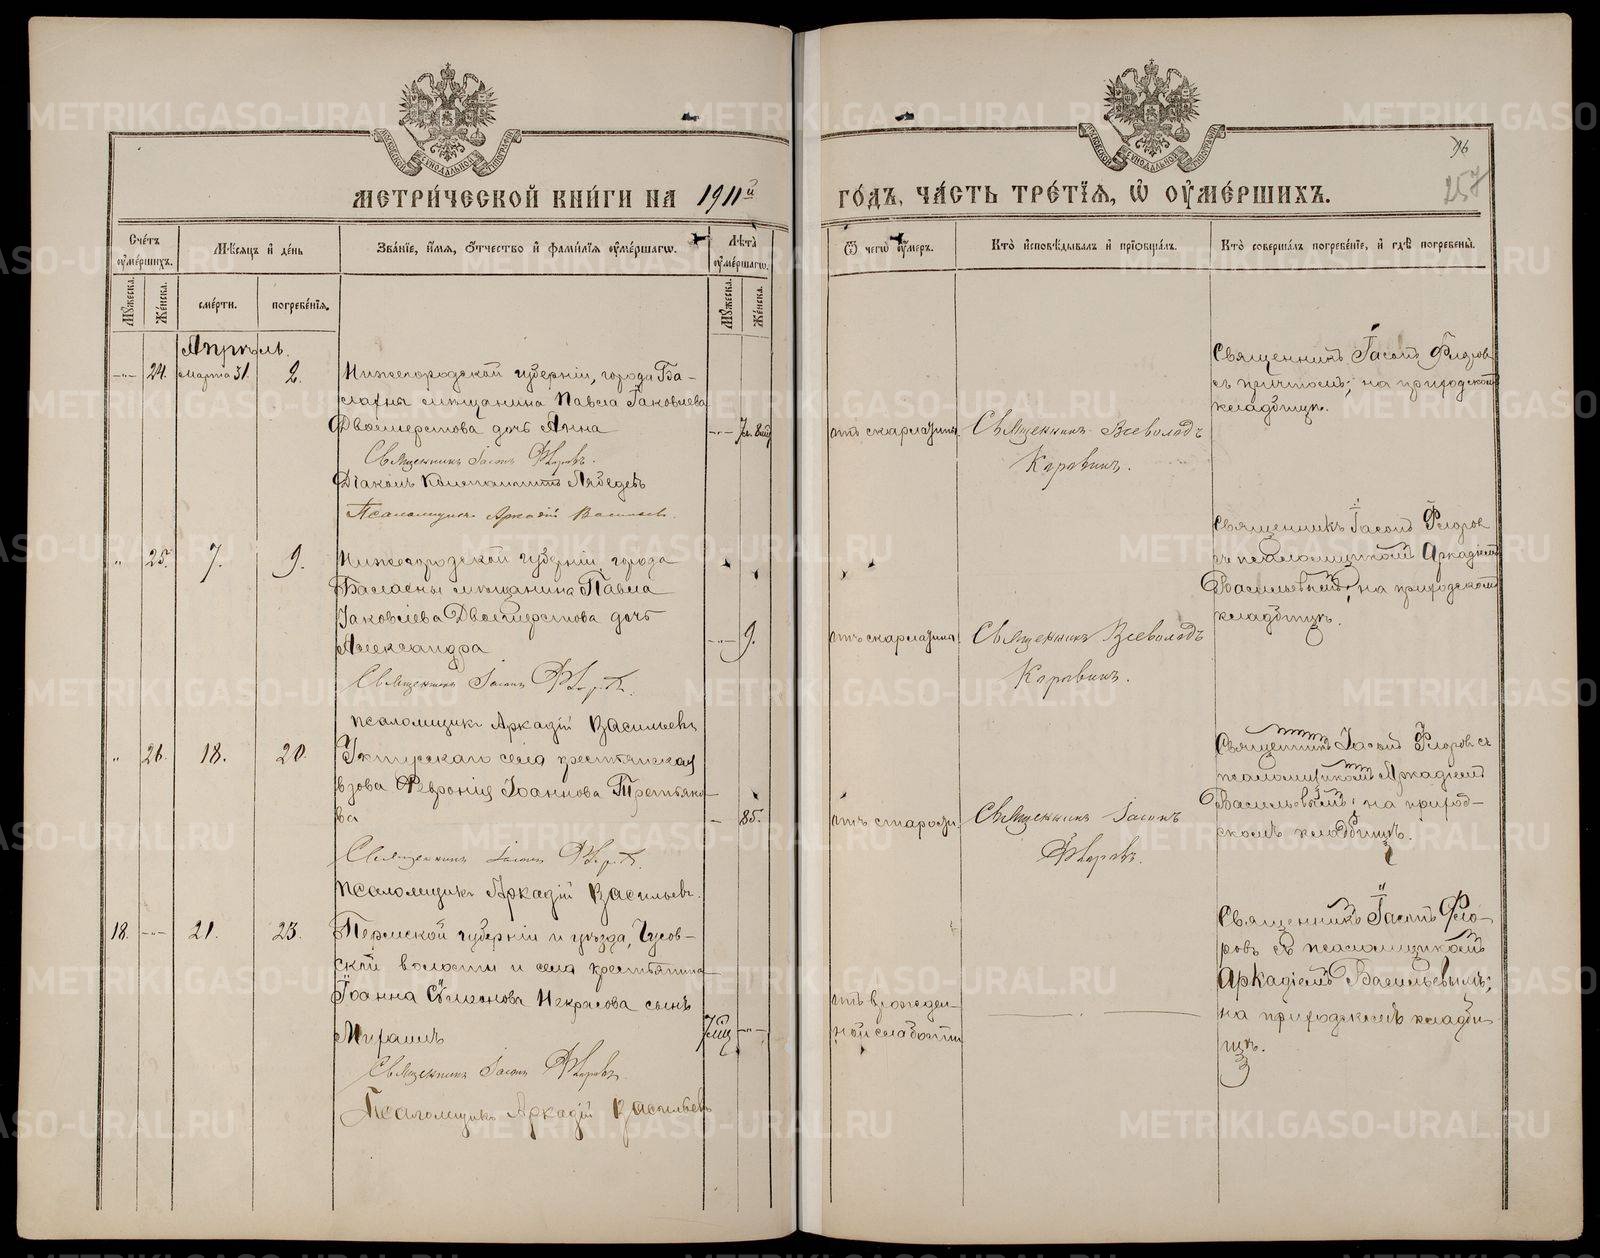 МЕТРИ́ЧЕСКОЙ КНИ́ГИ НА 1911й ГО́ДЪ, ЧА́СТЬ ТРЕ́ТІЯ, Ѡ ОУМЕ́РШИХЪ.
96
257
Сче́тъ оуме́ршихъ.
Мѣ́сяцъ и де́нь
Зва́нїе, и́мя, ѻ́тчество и фами́лїя оуме́ршагѡ.
Лѣ́та оуме́ршагѡ.
Ѿ чегѡ̀ оу́меръ.
Кто̀ исповѣ́дывалъ и прїѡбща́лъ.
Кто̀ соверша́лъ погребе́нїе, и гдѣ̀ погребены̀.
Мꙋ́жеска.
Же́нска.
сме́рти.
погребе́нїѧ.
Мꙋ́жеска.
Же́нска.
Апрѣль.
24. Марта 31. 2.
Нижегородской губерніи, города Ба-
лахна мѣщанина Павла Іаковлева
Двоеперстова дочь Анна
Священникъ Іасонъ Флоровъ.
Діаконъ Константинъ Лебедевъ
Псаломщикъ Аркадій Васильевъ.
отъ скарлатины.
Священникъ Всеволодъ
Коровинъ.
Священникъ Іасонъ Флоровъ
съ причтомъ; на приходскомъ
кладбищѣ.
" 25. 7. 9.
Нижегородской губерніи города
Балахны мѣщанина Павла
Іаковлева Двоеперстова дочь
Александра
9.
Священникъ Іасонъ Флоровъ.
псаломщикъ Аркадій Васильевъ
отъ скарлатины.
Священникъ Всеволодъ
Коровинъ.
Священникъ Іасонъ Флоровъ
съ псаломщикомъ Аркадіемъ
Васильевымъ; на приходскомъ
кладбищѣ.
" 26. 18. 20.
Уктусскаго села крестьянская
вдова Февронія Іоаннова Третьяко-
ва
85.
Священникъ Іасонъ Флоровъ.
псаломщикъ Аркадій Васильевъ.
отъ старости.
Священникъ Іасонъ
Флоровъ.
Священникъ Іасонъ Флоровъ съ
псаломщикомъ Аркадіемъ
Васильевымъ; на приход-
скомъ кладбищѣ.
18. 21. 23.
Пермской губерніи и уѣзда, Чусов-
ской волости и села крестьянина
Іоанна Некрасова сынъ
Михаилъ
Священникъ Іасонъ Флоровъ.
Псаломщикъ Аркадій Васильевъ
отъ врожден-
ной слабости
Священникъ Іасонъ Фло-
ровъ съ псаломщикомъ
Аркадіемъ Васильевымъ;
на приходскомъ кладби-
щѣ.
METRIKI.GASO-URAL.RU